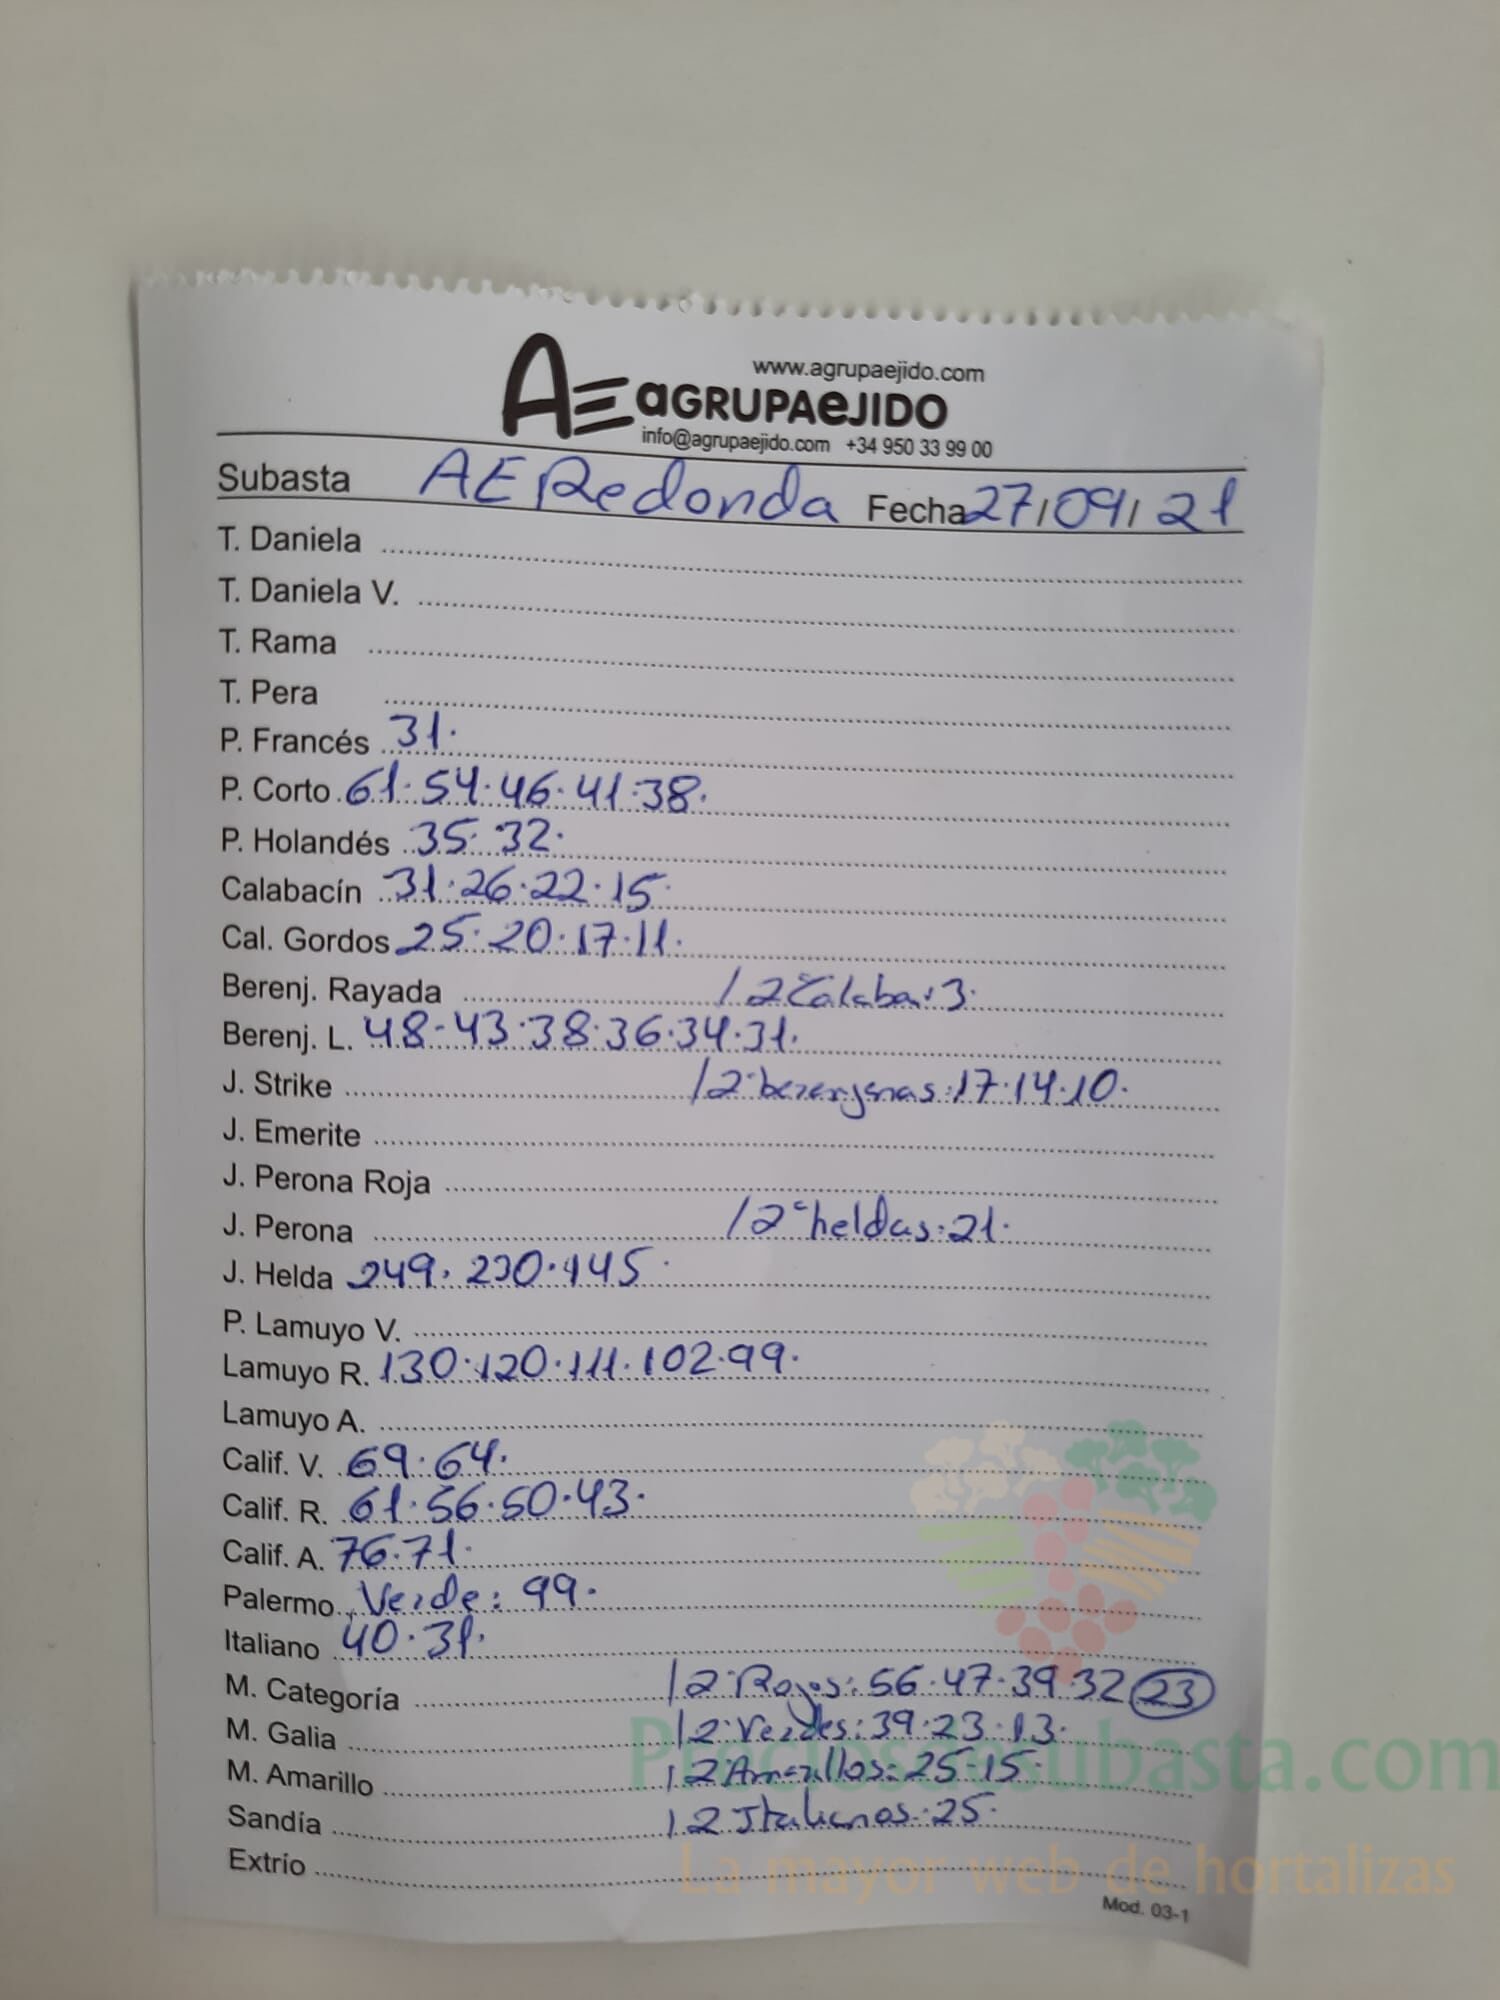 www.agrupaejido.com
AE aGRUPAeJIDO
info@agrupaejido.com +34 950 33 99 00
Subasta AE Redonda Fecha 27/09/21
T. Daniela
T. Daniela V.
T. Rama
T. Pera
P. Francés 31.
P. Corto 61.54.46.41.38.
P. Holandés 35.32.
Calabacín 31.26.22.15.
Cal. Gordos 25.20.17.11.
Berenj. Rayada /2ª Calaba: 3.
Berenj. L. 48-43.38.36.34.31.
J. Strike /2ª berenjenas: 17.14.10.
J. Emerite
J. Perona Roja
J. Perona /2ª heldas: 21.
J. Helda 249. 230.145.
P. Lamuyo V.
Lamuyo R. 130.120.111.102.99.
Lamuyo A.
Calif. V. 69.64.
Calif. R. 61.56.50.43.
Calif. A. 76.71.
Palermo Verde: 99.
Italiano 40.31.
M. Categoría /2ª Rojos: 56.47.39.32 23
M. Galia /2ª Verdes: 39.23.13.
M. Amarillo /2ª Amarillos: 25.15.
Sandía /2 Italianos: 25.
Extrío
Mod. 03-1
Preciosdesubasta.com
La mayor web de hortalizas